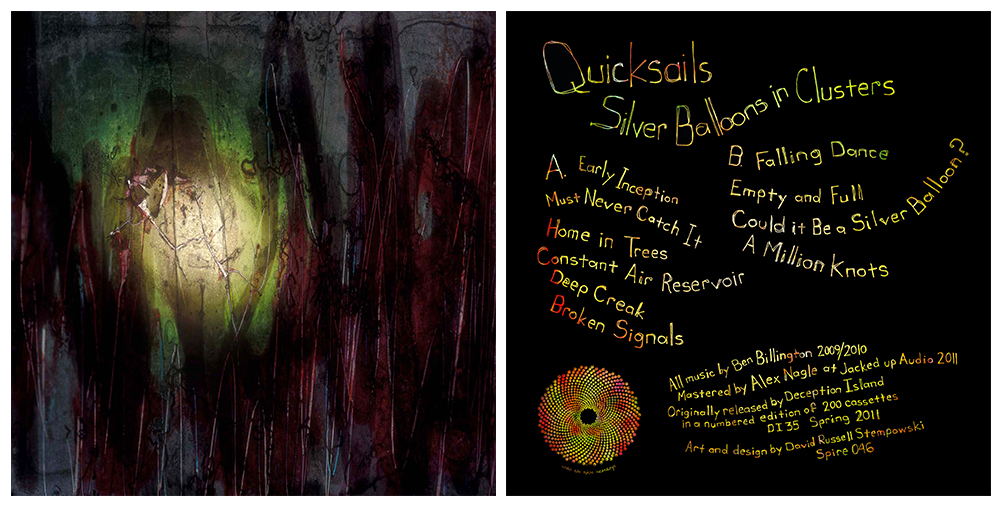 Quicksails
Silver Balloons in Clusters
A. Early Inception
Must Never Catch It
Home in Trees
Constant Air Reservoir
Deep Creak
Broken Signals
B Falling Dance
Empty and Full
Could it Be a Silver Balloon?
A Million Knots
All music by Ben Billington 2009/2010
Mastered by Alex Nagle at Jacked up Audio 2011
Originally released by Deception Island
in a numbered edition of 200 cassettes
DI 35 Spring 2011
Art and design by David Russell Stempowski
Spire 046